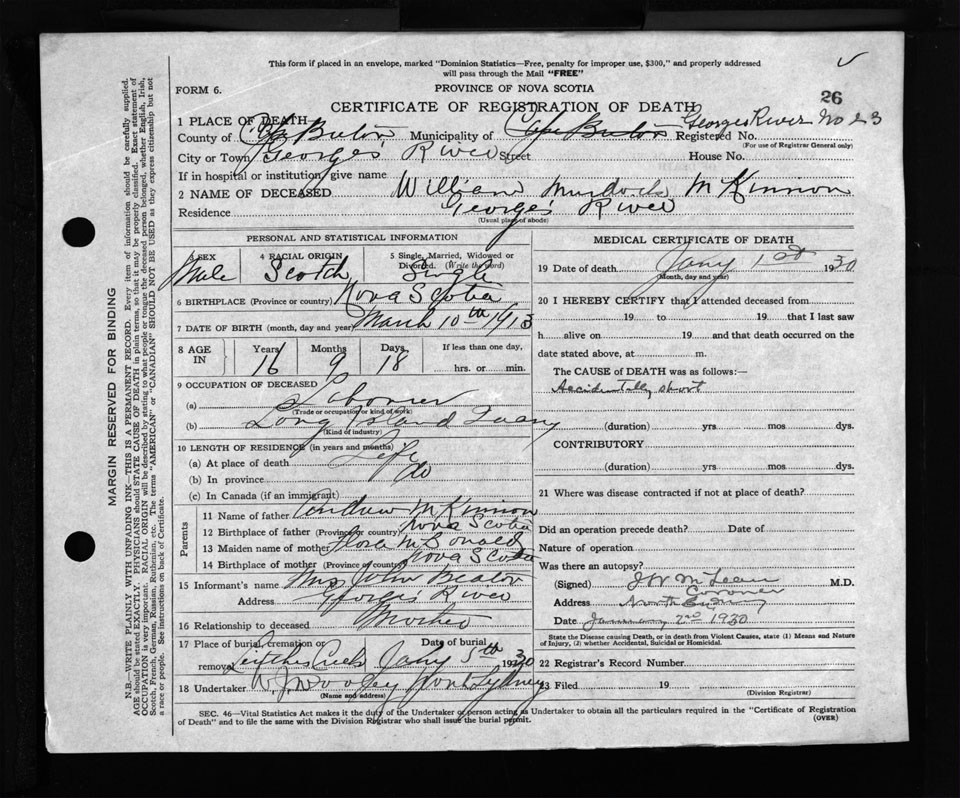 This form if placed in an envelope, marked "Dominion Statistics—Free, penalty for improper use, $300," and properly addressed
will pass through the Mail "FREE"
FORM 6.
PROVINCE OF NOVA SCOTIA
26
CERTIFICATE OF REGISTRATION OF DEATH
1 PLACE OF DEATH
Georges River No 23
County of Cape Breton Municipality of Cape Breton Registered No.
(For use of Registrar General only)
City or Town Georges River Street House No.
If in hospital or institution, give name
2 NAME OF DECEASED William Murdoch McKinnon
Residence George's River
(Usual place of abode)
PERSONAL AND STATISTICAL INFORMATION
3 SEX 4 RACIAL ORIGIN 5 Single, Married, Widowed or Divorced. (Write the word)
Male Scotch Single
6 BIRTHPLACE (Province or country) Nova Scotia
7 DATE OF BIRTH (month, day and year) March 10th 1913
8 AGE IN Years Months Days If less than one day,
16 9 18 hrs. or min.
9 OCCUPATION OF DECEASED
(a) Laborer
(Trade or occupation or kind of work)
(b) Long Island
(Kind of industry)
10 LENGTH OF RESIDENCE (in years and months)
(a) At place of death Life
(b) In province do
(c) In Canada (if an immigrant)
Parents
11 Name of father Andrew McKinnon
12 Birthplace of father (Province or country) Nova Scotia
13 Maiden name of mother Flora McDonald
14 Birthplace of mother (Province or country) Nova Scotia
15 Informant's name Mrs John Beaton
Address Georges River
16 Relationship to deceased Mother
17 Place of burial, cremation or removal Leitches Creek Date of burial Jany 5th 1930
18 Undertaker W. J. Dooley North Sydney
(Name and address)
MEDICAL CERTIFICATE OF DEATH
19 Date of death Jany 1st 1930
(Month, day and year)
20 I HEREBY CERTIFY that I attended deceased from
19 to 19 that I last saw
h alive on 19 and that death occurred on the
date stated above, at m.
The CAUSE OF DEATH was as follows:—
Accidentally shot
(duration) yrs mos dys.
CONTRIBUTORY
(duration) yrs mos dys.
21 Where was disease contracted if not at place of death?
Did an operation precede death? Date of
Nature of operation
Was there an autopsy?
(Signed) McLean M.D.
Coroner
Address North Sydney
Date January 2nd 1930
State the Disease causing Death, or in death from Violent Causes, state (1) Means and Nature
of Injury, (2) whether Accidental, Suicidal or Homicidal.
22 Registrar's Record Number
23 Filed 19
(Division Registrar)
SEC. 46—Vital Statistics Act makes it the duty of the Undertaker or person acting as Undertaker to obtain all the particulars required in the "Certificate of Registration
of Death" and to file the same with the Division Registrar who shall issue the burial permit.
(OVER)
MARGIN RESERVED FOR BINDING
N.B.—WRITE PLAINLY WITH UNFADING INK—THIS IS A PERMANENT RECORD. Every item of information should be carefully supplied.
AGE should be stated EXACTLY. PHYSICIANS should STATE CAUSE OF DEATH in plain terms, so that it may be properly classified. Exact statement of
OCCUPATION is very important. RACIAL ORIGIN will be described by stating to what people or tongue the deceased person belonged, whether English, Irish,
Scotch, French, German, Russian, Ruthenian, etc. The terms "AMERICAN" or "CANADIAN" SHOULD NOT BE USED as they express citizenship but not
a race or people. See instructions on back of Certificate.